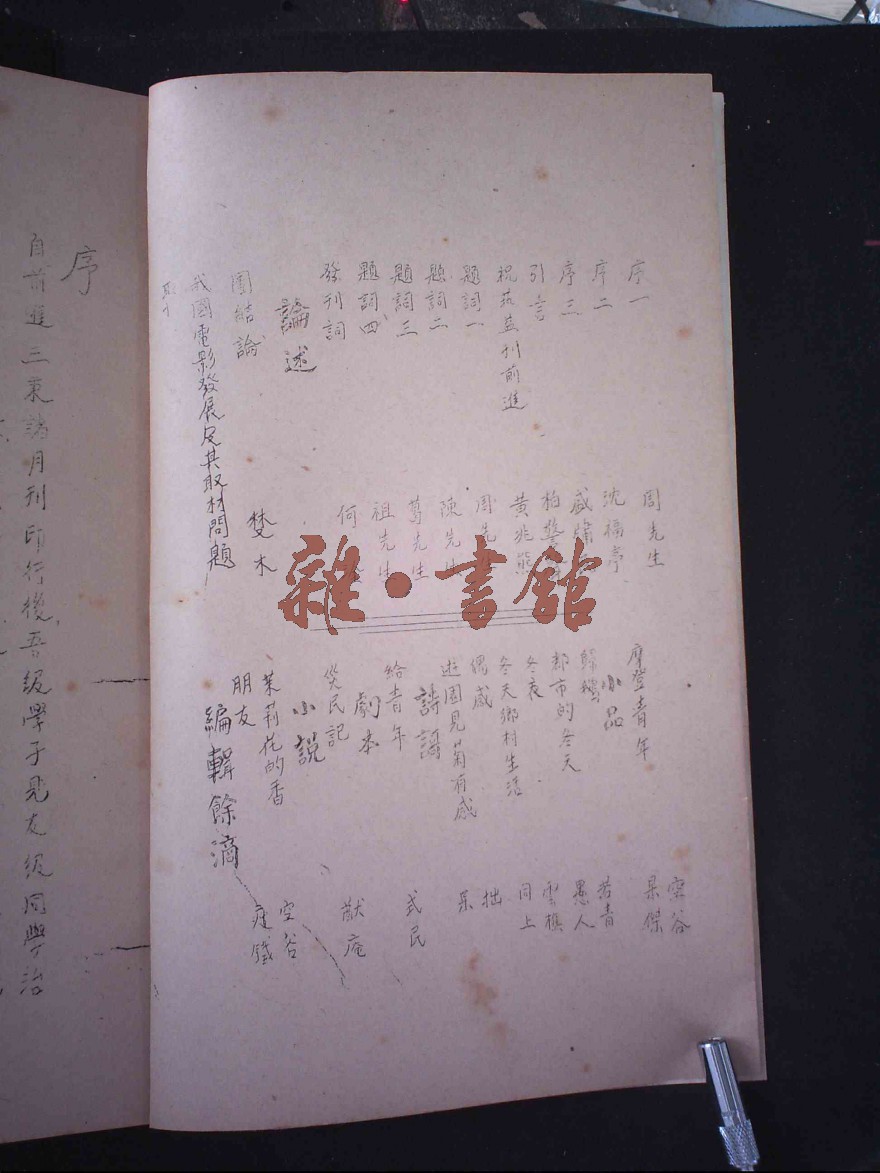 序一
周先生
序二
沈福亭
序三
引言
柏
祝茲益刊前進
黃兆熊
題詞一
周先生
題詞二
陳先生
題詞三
葛先生
題詞四
祖先生
發刊詞
何
論述
團結論
楚木
我國電影發展及其取材問題
摩登青年
空谷
小品
杲傑
歸鄉
若青
都市的冬天
愚人
冬夜
雲樵
冬天鄉村生活
同上
偶感
拙
遊園見菊有感
呆
詩謌
給青年
式民
劇本
災民記
猷庵
小説
茉莉花的香
空谷
朋友
編輯餘滴
雜·書館
序
自前進三東誌月刊印行後吾級學子見友級同學治